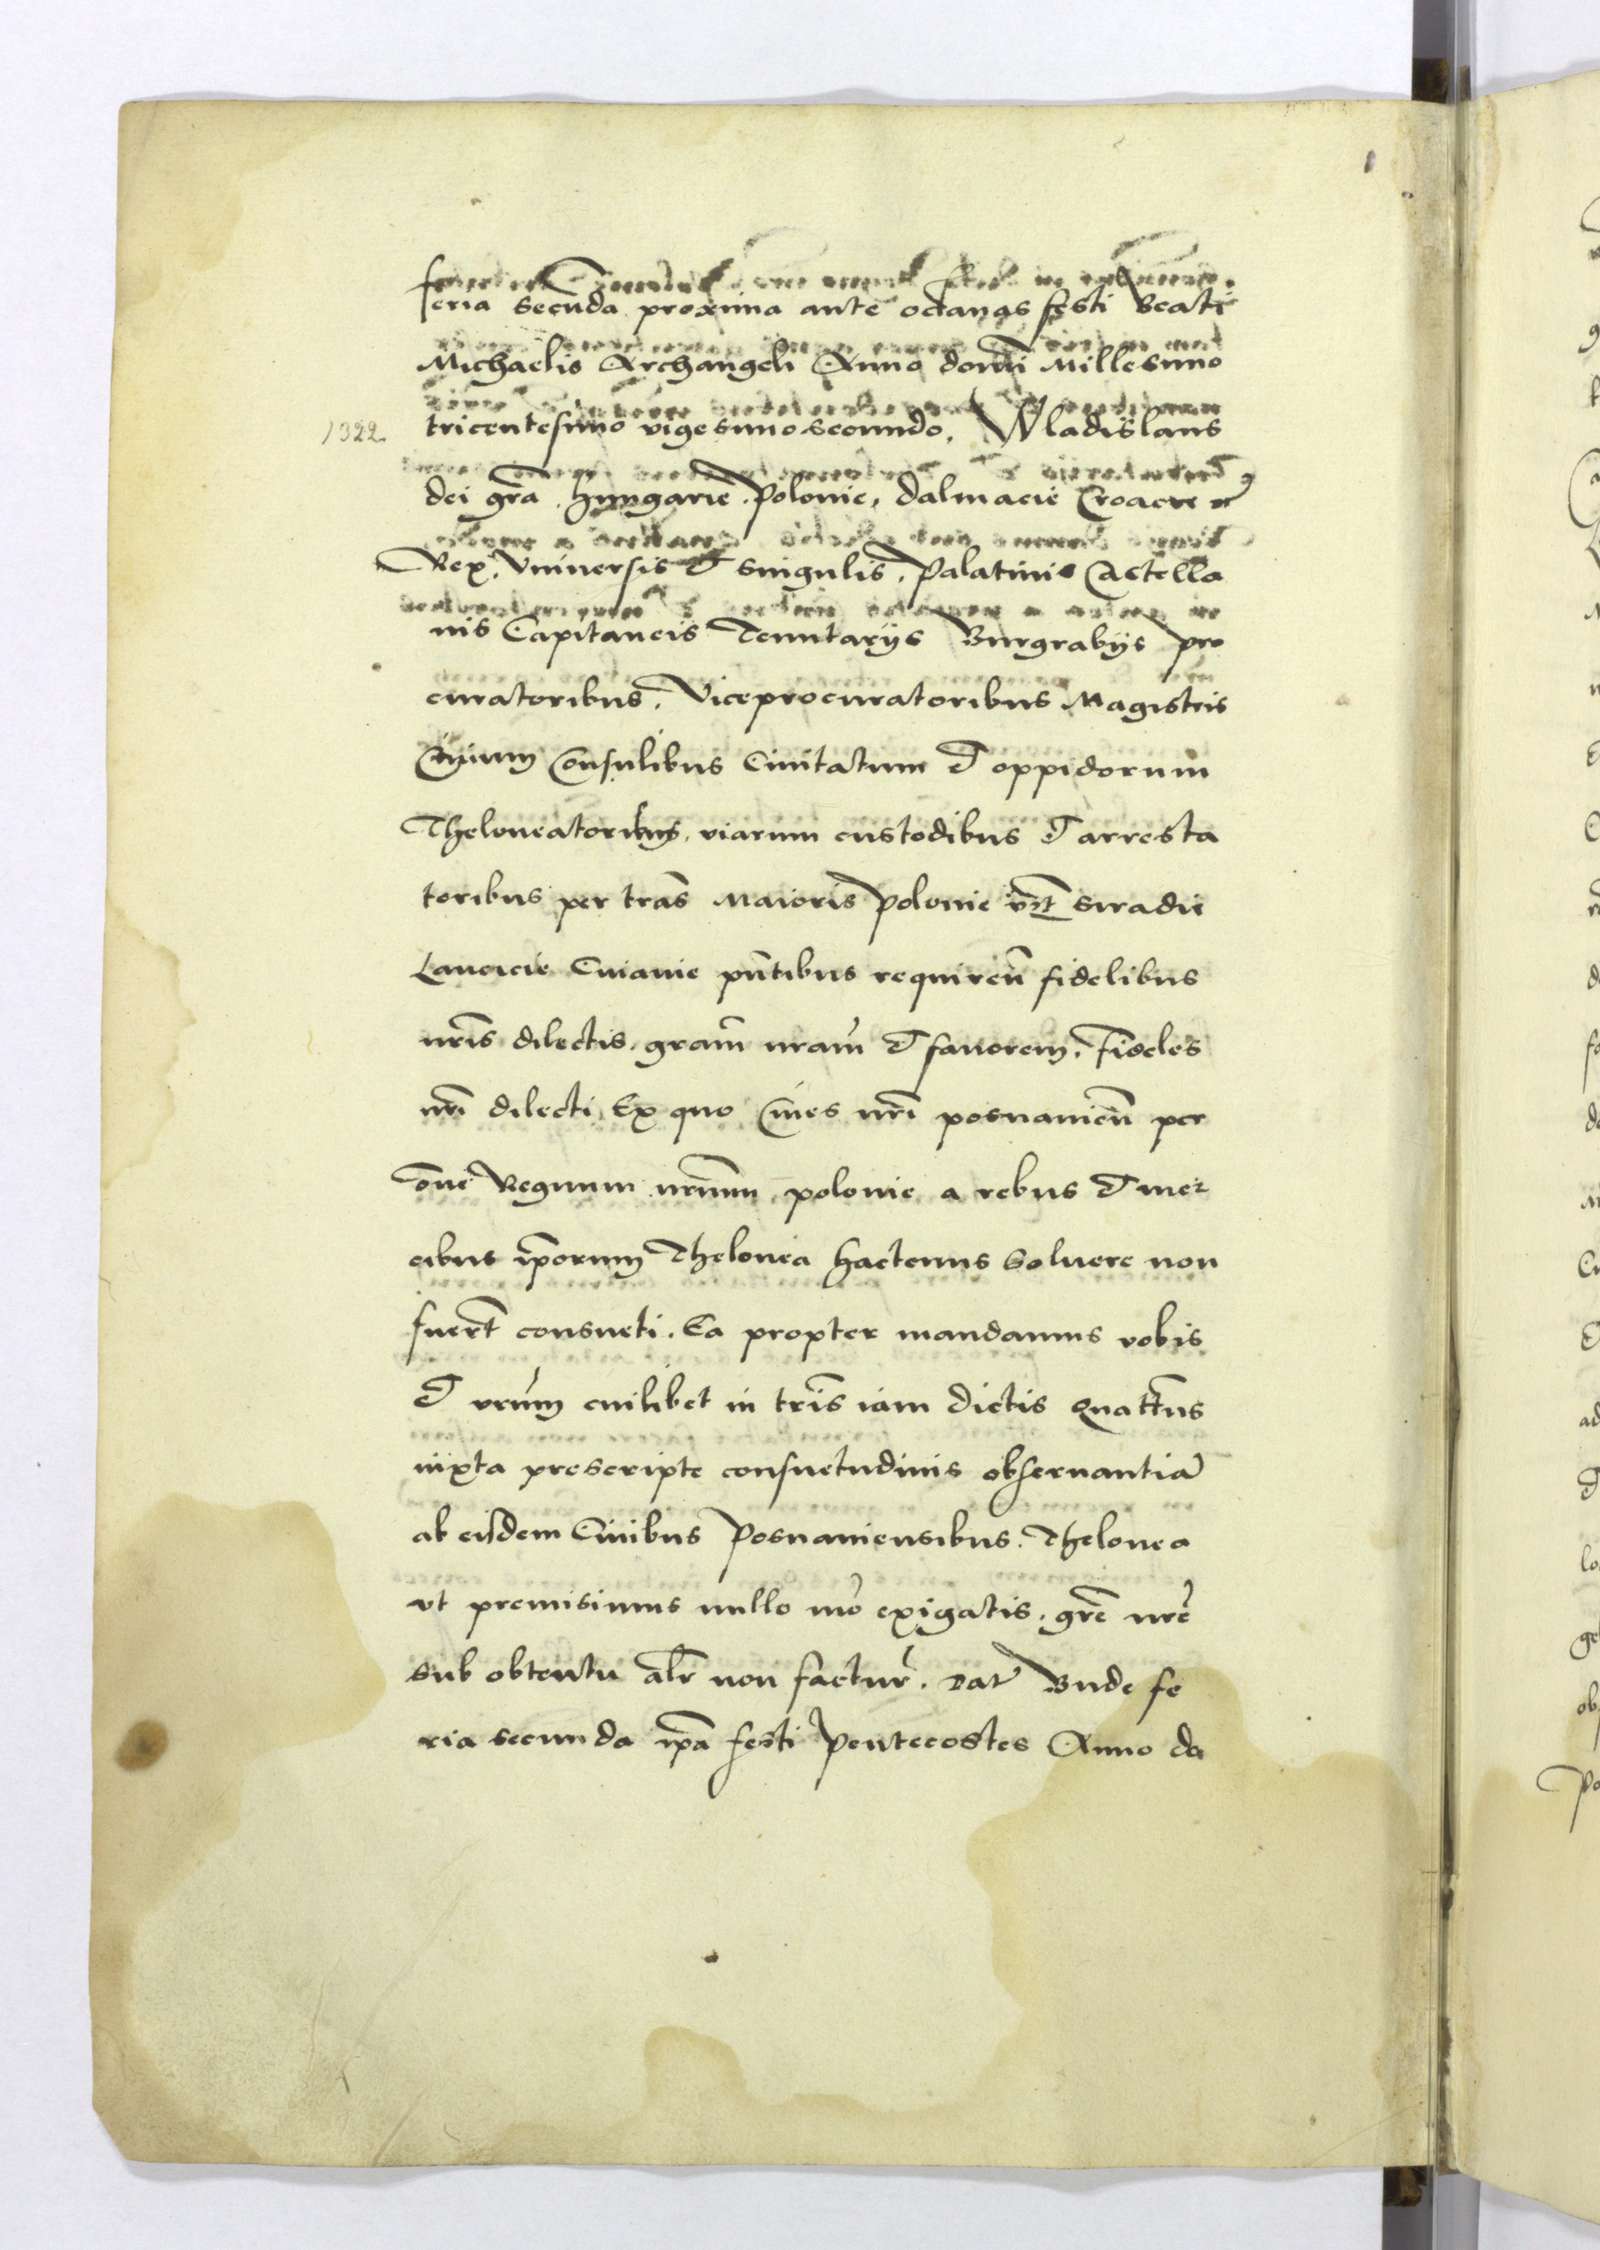 feria secūda proxima ante octauas festi Beati
Michaelis Archangeli Anno domī Millesimo
1322 tricentesimo vigesimosecundo, Wladislaus
dei grā. Hungarie. Polonie, dalmacie Croacie ꝛc
Rex, Vniuersis et singulis. palatinis Castella
nis Capitaneis Tenutarijs Burgrabijs pro
curatoribus, Viceprocuratoribus Magistris
Ciuium Consulibus Ciuitatum et oppidorum
Theloneatoribus, viarum custodibus et arresta
toribus per trās Maioris Polonie vz̄t Siradie
Lancicie Cuiauie pn̄tibus requireñ fidelibus
nr̄is dilectis. gram̄ nram̄ et fauorem, Fideles
nr̄i dilecti Ex quo Ciues nr̄i posnanień per
ōme Regnum nr̄mm polonie a rebus et mer
cibus ip̄orum Thelonea hactenus soluere non
fuer̄t consueti. Ea propter mandamus vobis
et vrūm cuilibet in tr̄is iam dictis Quat̄tus
iuxta prescripte consuetudinis obseruantiā
ab eisdem Ciuibus Posnaniensibus. Thelonea
vt premisimus nullo mō exigatis. grē nrē
sub obtentu alr̄ non factur̄. Dat̄ Bude fe
ria secunda ip̄a festi Pentecostes Anno do